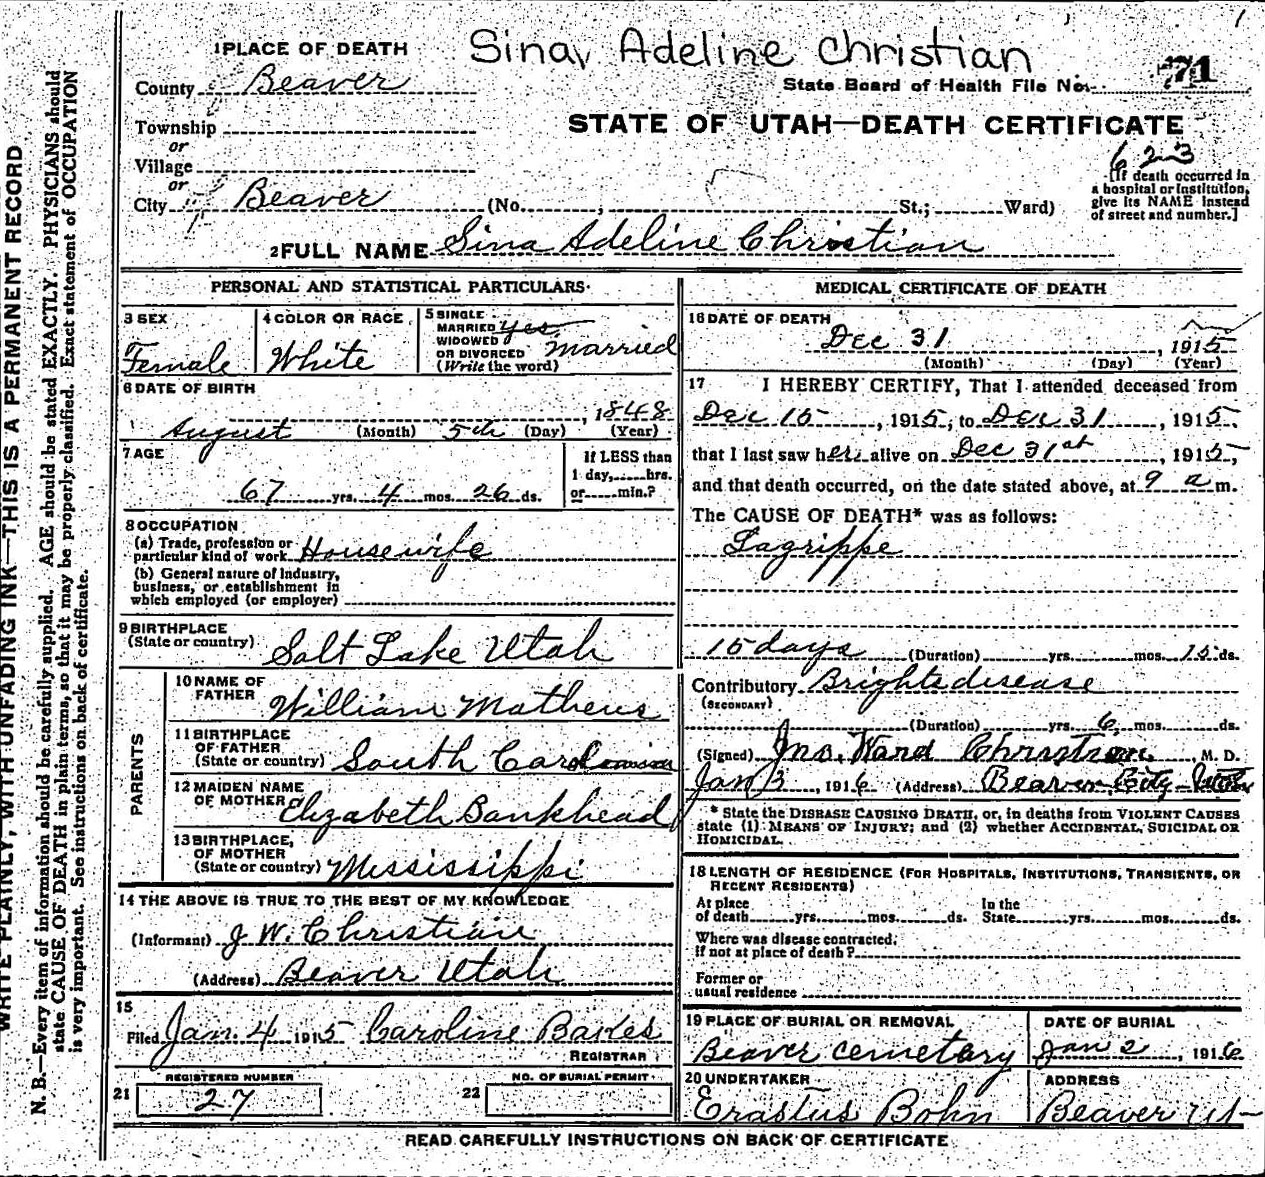 Sina, Adeline Christian
1 PLACE OF DEATH
County Beaver
State Board of Health File No. 71
Township
or
Village
or
City Beaver (No. , St.; Ward)
STATE OF UTAH—DEATH CERTIFICATE
623
[If death occurred in
a hospital or institution,
give its NAME instead
of street and number.]
2 FULL NAME Sina Adeline Christian
PERSONAL AND STATISTICAL PARTICULARS
3 SEX
Female
4 COLOR OR RACE
White
5 SINGLE
MARRIED yes
WIDOWED
OR DIVORCED married
(Write the word)
6 DATE OF BIRTH
August (Month) 5th (Day), 1848 (Year)
7 AGE
67 yrs. 4 mos. 26 ds.
If LESS than
1 day, hrs.
or min.?
8 OCCUPATION
(a) Trade, profession or
particular kind of work Housewife
(b) General nature of industry,
business, or establishment in
which employed (or employer)
9 BIRTHPLACE
(State or country) Salt Lake Utah
PARENTS
10 NAME OF
FATHER William Mathews
11 BIRTHPLACE
OF FATHER
(State or country) South Carolina
12 MAIDEN NAME
OF MOTHER Elizabeth Bankhead
13 BIRTHPLACE,
OF MOTHER
(State or country) Mississippi
14 THE ABOVE IS TRUE TO THE BEST OF MY KNOWLEDGE
(Informant) J W. Christian
(Address) Beaver Utah
15
Filed Jan. 4 1915 Caroline
REGISTRAR
REGISTERED NUMBER
21 27
NO. OF BURIAL PERMIT
22
MEDICAL CERTIFICATE OF DEATH
16 DATE OF DEATH
Dec 31, 1915
(Month) (Day) (Year)
17 I HEREBY CERTIFY, That I attended deceased from
Dec 15, 1915, to Dec 31, 1915,
that I last saw her alive on Dec 31st, 1915,
and that death occurred, on the date stated above, at 9 a m.
The CAUSE OF DEATH* was as follows:
Lagrippe
15 days (Duration) yrs. mos. 15 ds.
Contributory Brights disease
(SECONDARY)
(Duration) yrs. 6, mos. ds.
(Signed) Jno. Ward Christian, M. D.
Jan 3, 1916 (Address) Beaver City
* State the DISEASE CAUSING DEATH, or, in deaths from VIOLENT CAUSES
state (1) MEANS OF INJURY; and (2) whether ACCIDENTAL, SUICIDAL OR
HOMICIDAL.
18 LENGTH OF RESIDENCE (FOR HOSPITALS, INSTITUTIONS, TRANSIENTS, OR
RECENT RESIDENTS)
At place
of death yrs. mos. ds.
In the
State yrs. mos. ds.
Where was disease contracted,
if not at place of death?
Former or
usual residence
19 PLACE OF BURIAL OR REMOVAL
Beaver cemetary
DATE OF BURIAL
Jan 2, 1916
20 UNDERTAKER
Erastus Bohn
ADDRESS
Beaver Ut
READ CAREFULLY INSTRUCTIONS ON BACK OF CERTIFICATE
WRITE PLAINLY, WITH UNFADING INK—THIS IS A PERMANENT RECORD.
N. B.—Every item of information should be carefully supplied. AGE should be stated EXACTLY. PHYSICIANS should
state CAUSE OF DEATH in plain terms, so that it may be properly classified. Exact statement of OCCUPATION
is very important. See instructions on back of certificate.